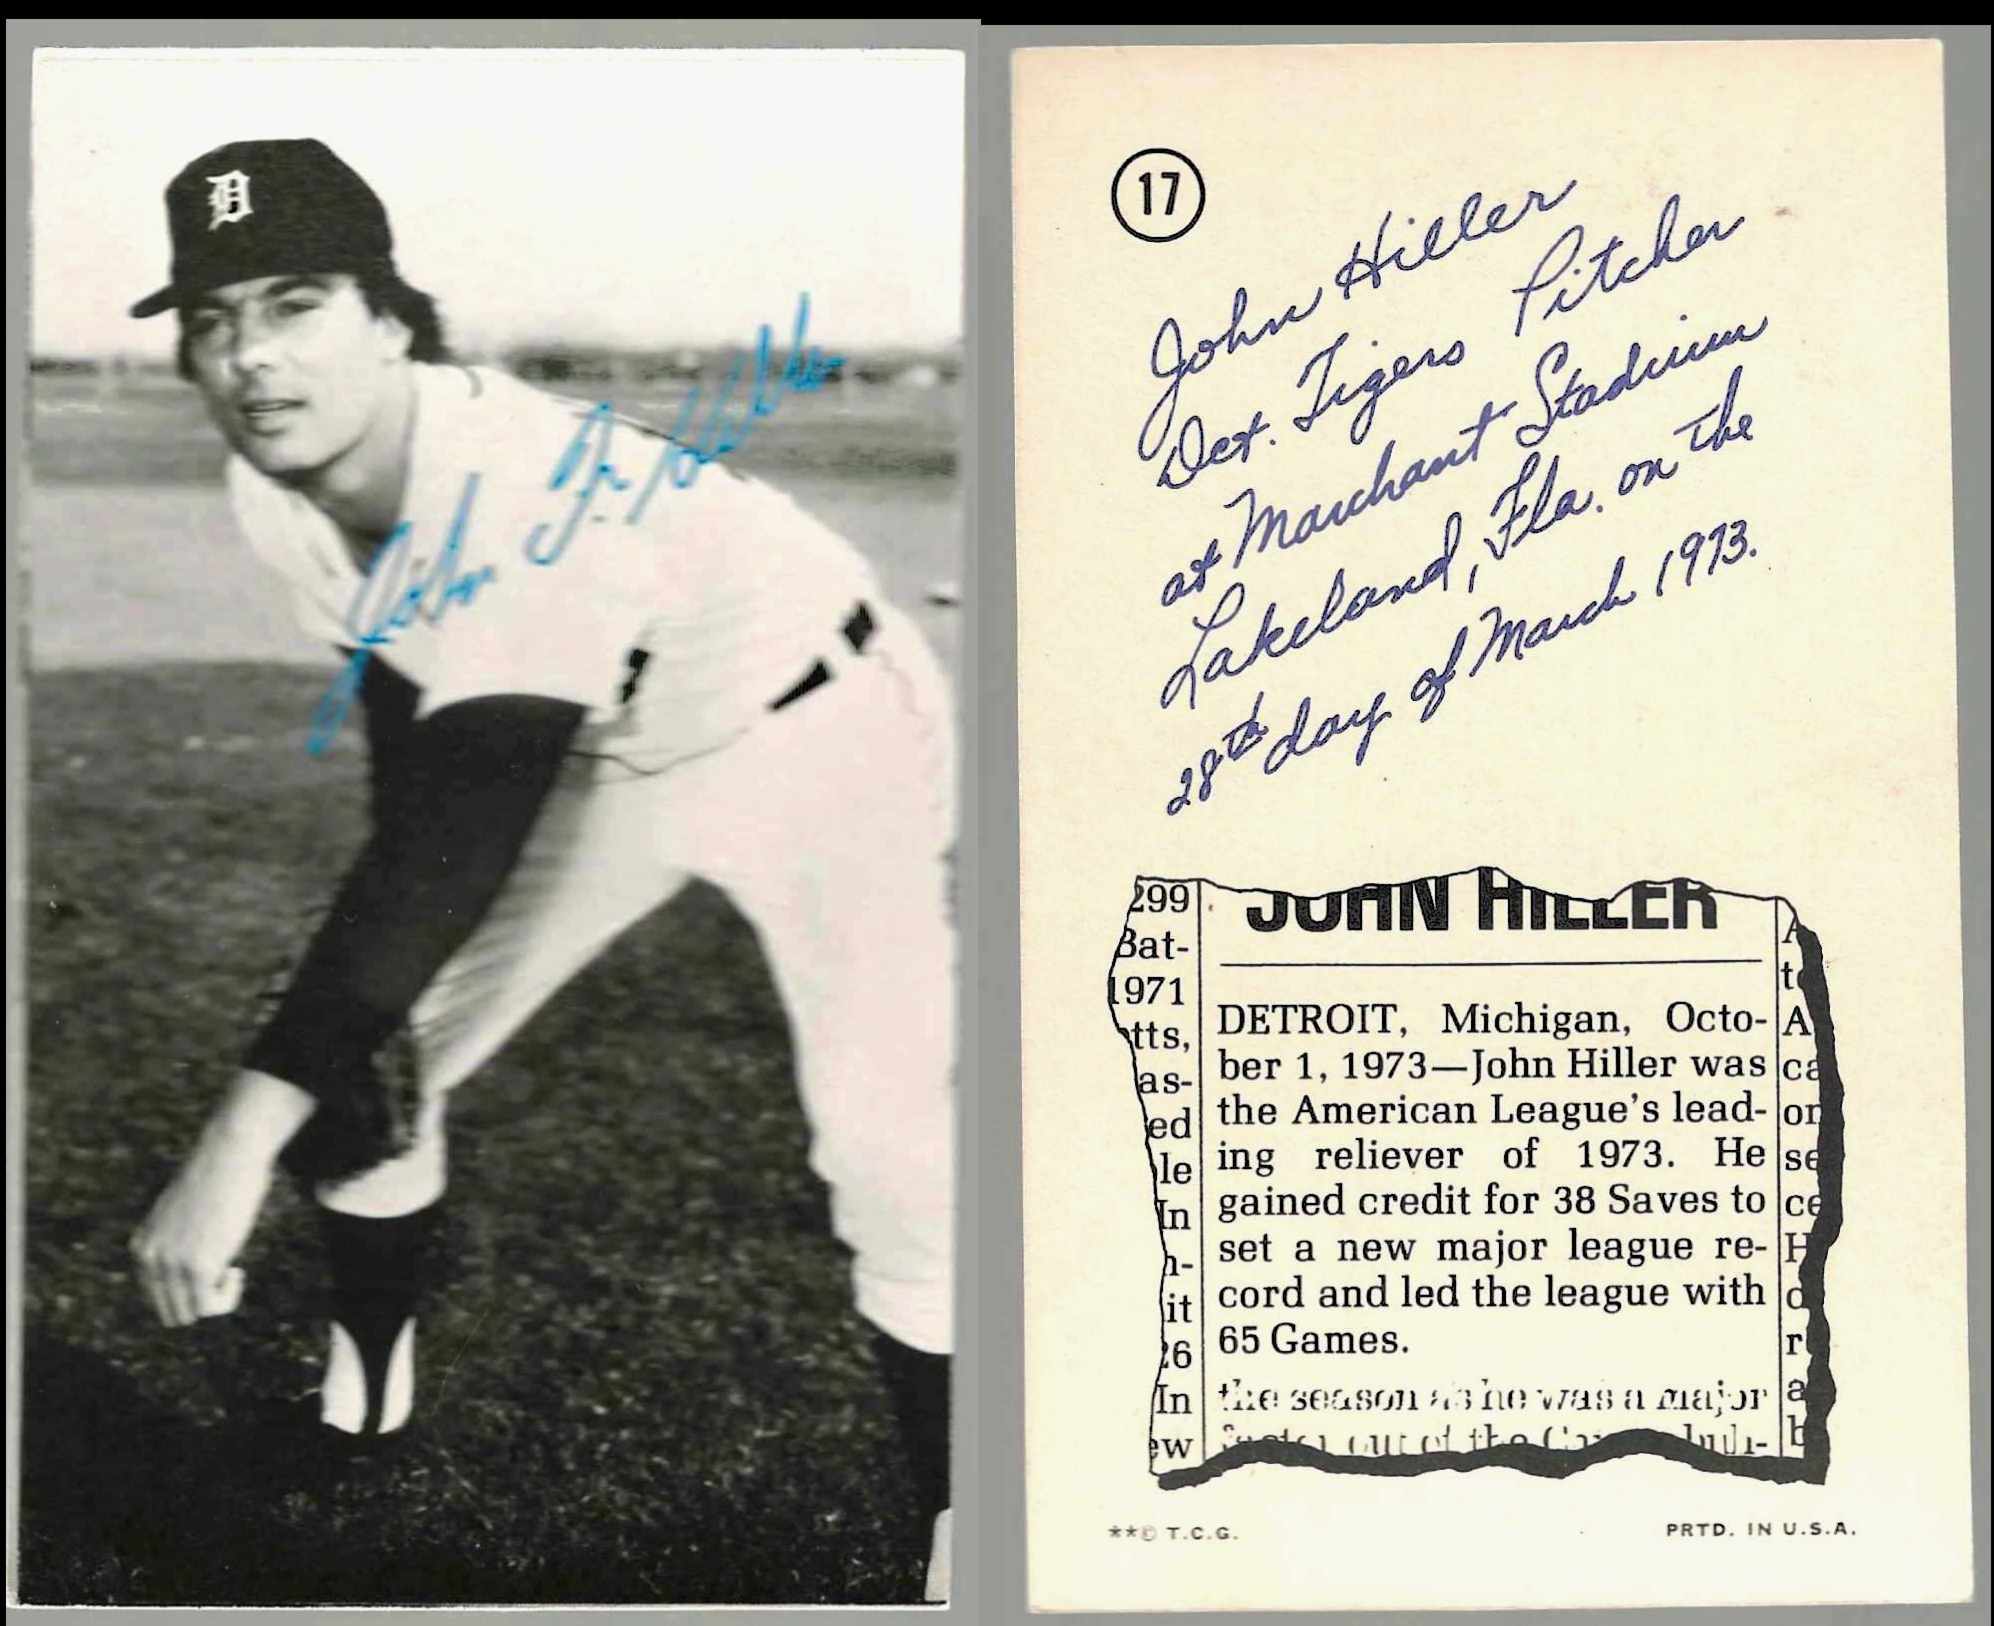 D
John F. Hiller
17
John Hiller
Det. Tigers Pitcher
at Marchant Stadium
Lakeland, Fla. on the
28th day of March 1973.
JOHN HILLER
DETROIT, Michigan, Octo-
ber 1, 1973—John Hiller was
the American League's lead-
ing reliever of 1973. He
gained credit for 38 Saves to
set a new major league re-
cord and led the league with
65 Games.
the season as he was a major
299
Bat-
1971
tts,
as-
ed
le
In
n-
it
26
In
ew
A
to
A
ca
or
se
ce
H
r
a
b
**© T.C.G.
PRTD. IN U.S.A.